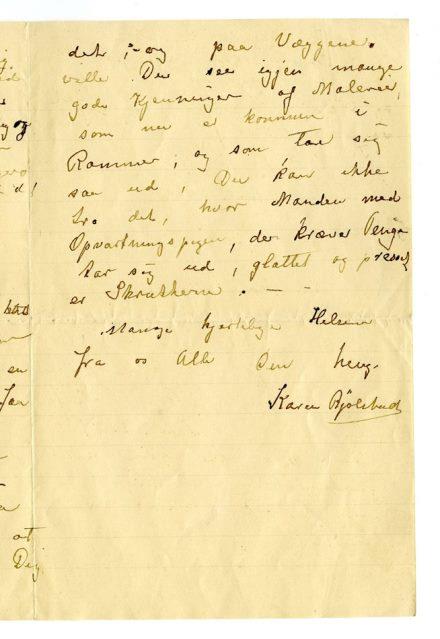 det ;- og paa Væggene.
vilde Du see igjen mange
gode Kjenninger af Malerier,
som nu er kommen i
Rammer, og som tar sig
saa ud, Du kan ikke
tro det, hvor Manden med
Opvartningspigen, der kræver Penge
tar sig ud, glattet og presset
er Skrukkerne. - -
Mange hjertelige Helsen
fra os Alle Din heng.
Karen Bjølstad
en
at
Dig